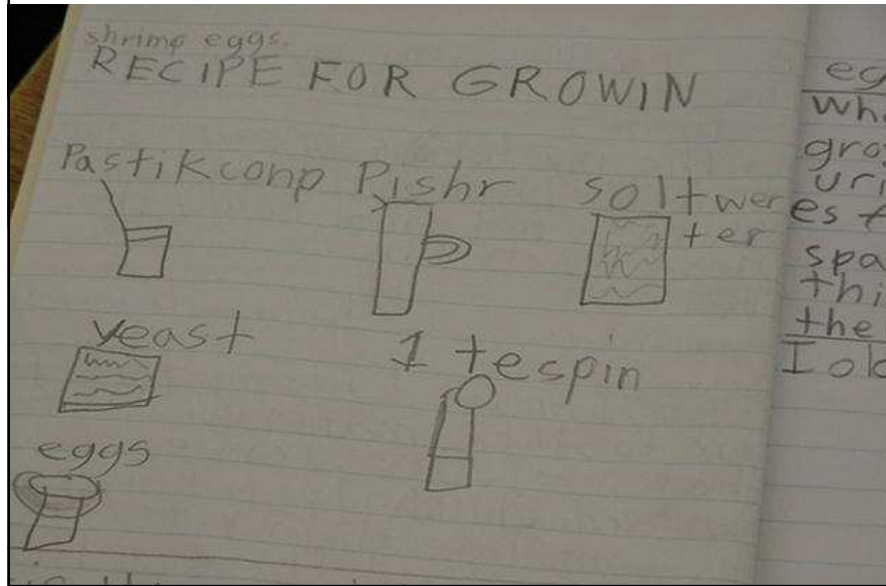 shrimp eggs.
RECIPE FOR GROWIN
Pastikconp Pishr soltwer
ter
yeast 1 tespin
eggs
eg
Whe
gro
uri
es
spa
thi
the
I